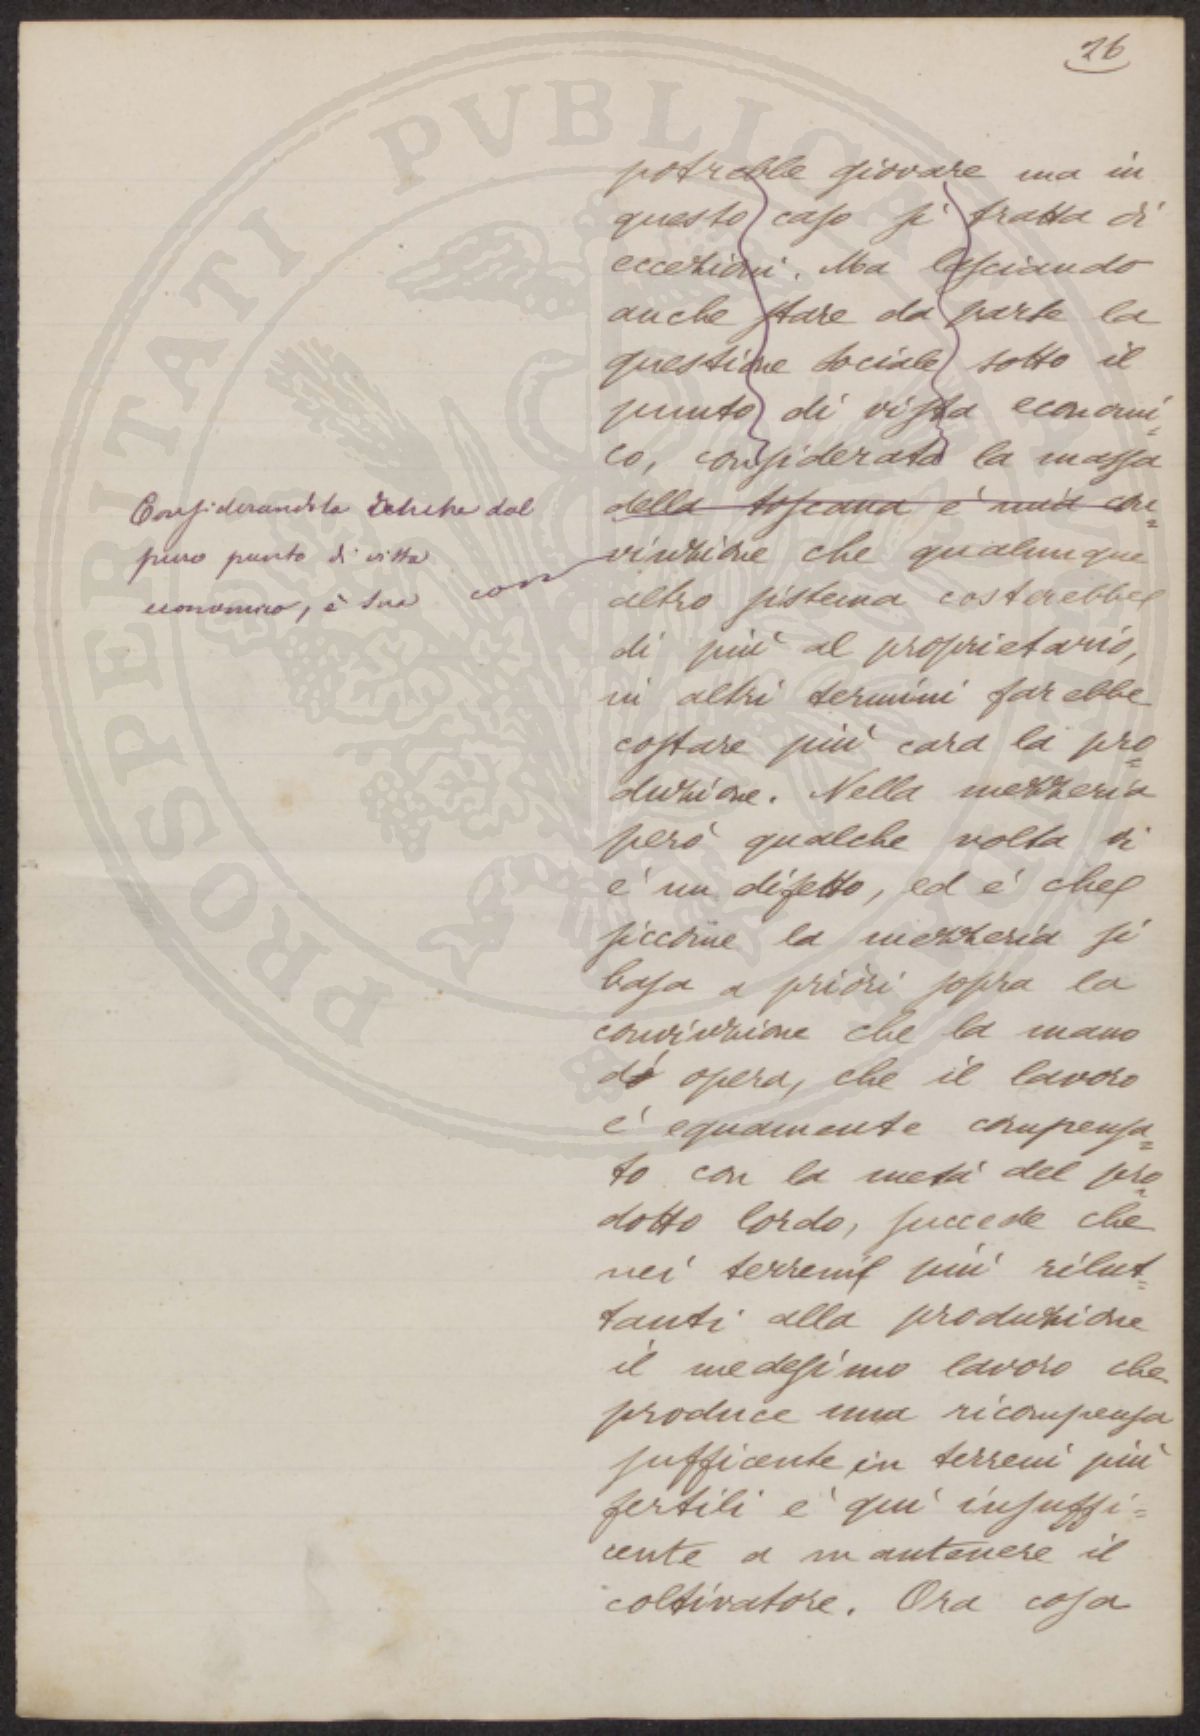 26
potrebbe giovare ma in
questo caso si tratta di
eccezioni. Ma lasciando
anche stare da parte la
questione sociale sotto il
punto di vista economi=
co, considerata la massa
della toscana è mia con=
vinzione che qualunque
altro sistema costerebbe
di più al proprietario,
in altri termini farebbe
costare più cara la pro=
duzione. Nella mezzeria
però qualche volta vi
è un difetto, ed è che
siccome la mezzeria si
basa a priori sopra la
convinzione che la mano
d'opera, che il lavoro
è equamente compensa=
to con la metà del pro=
dotto lordo, succede che
nei terreni più rilut=
tanti alla produzione
il medesimo lavoro che
produce una ricompensa
sufficente in terreni più
fertili è qui insuffi=
cente a mantenere il
coltivatore. Ora cosa
Considerandola dal
puro punto di vista
economico, è sua con
PROSPERITATI PVBLICAE